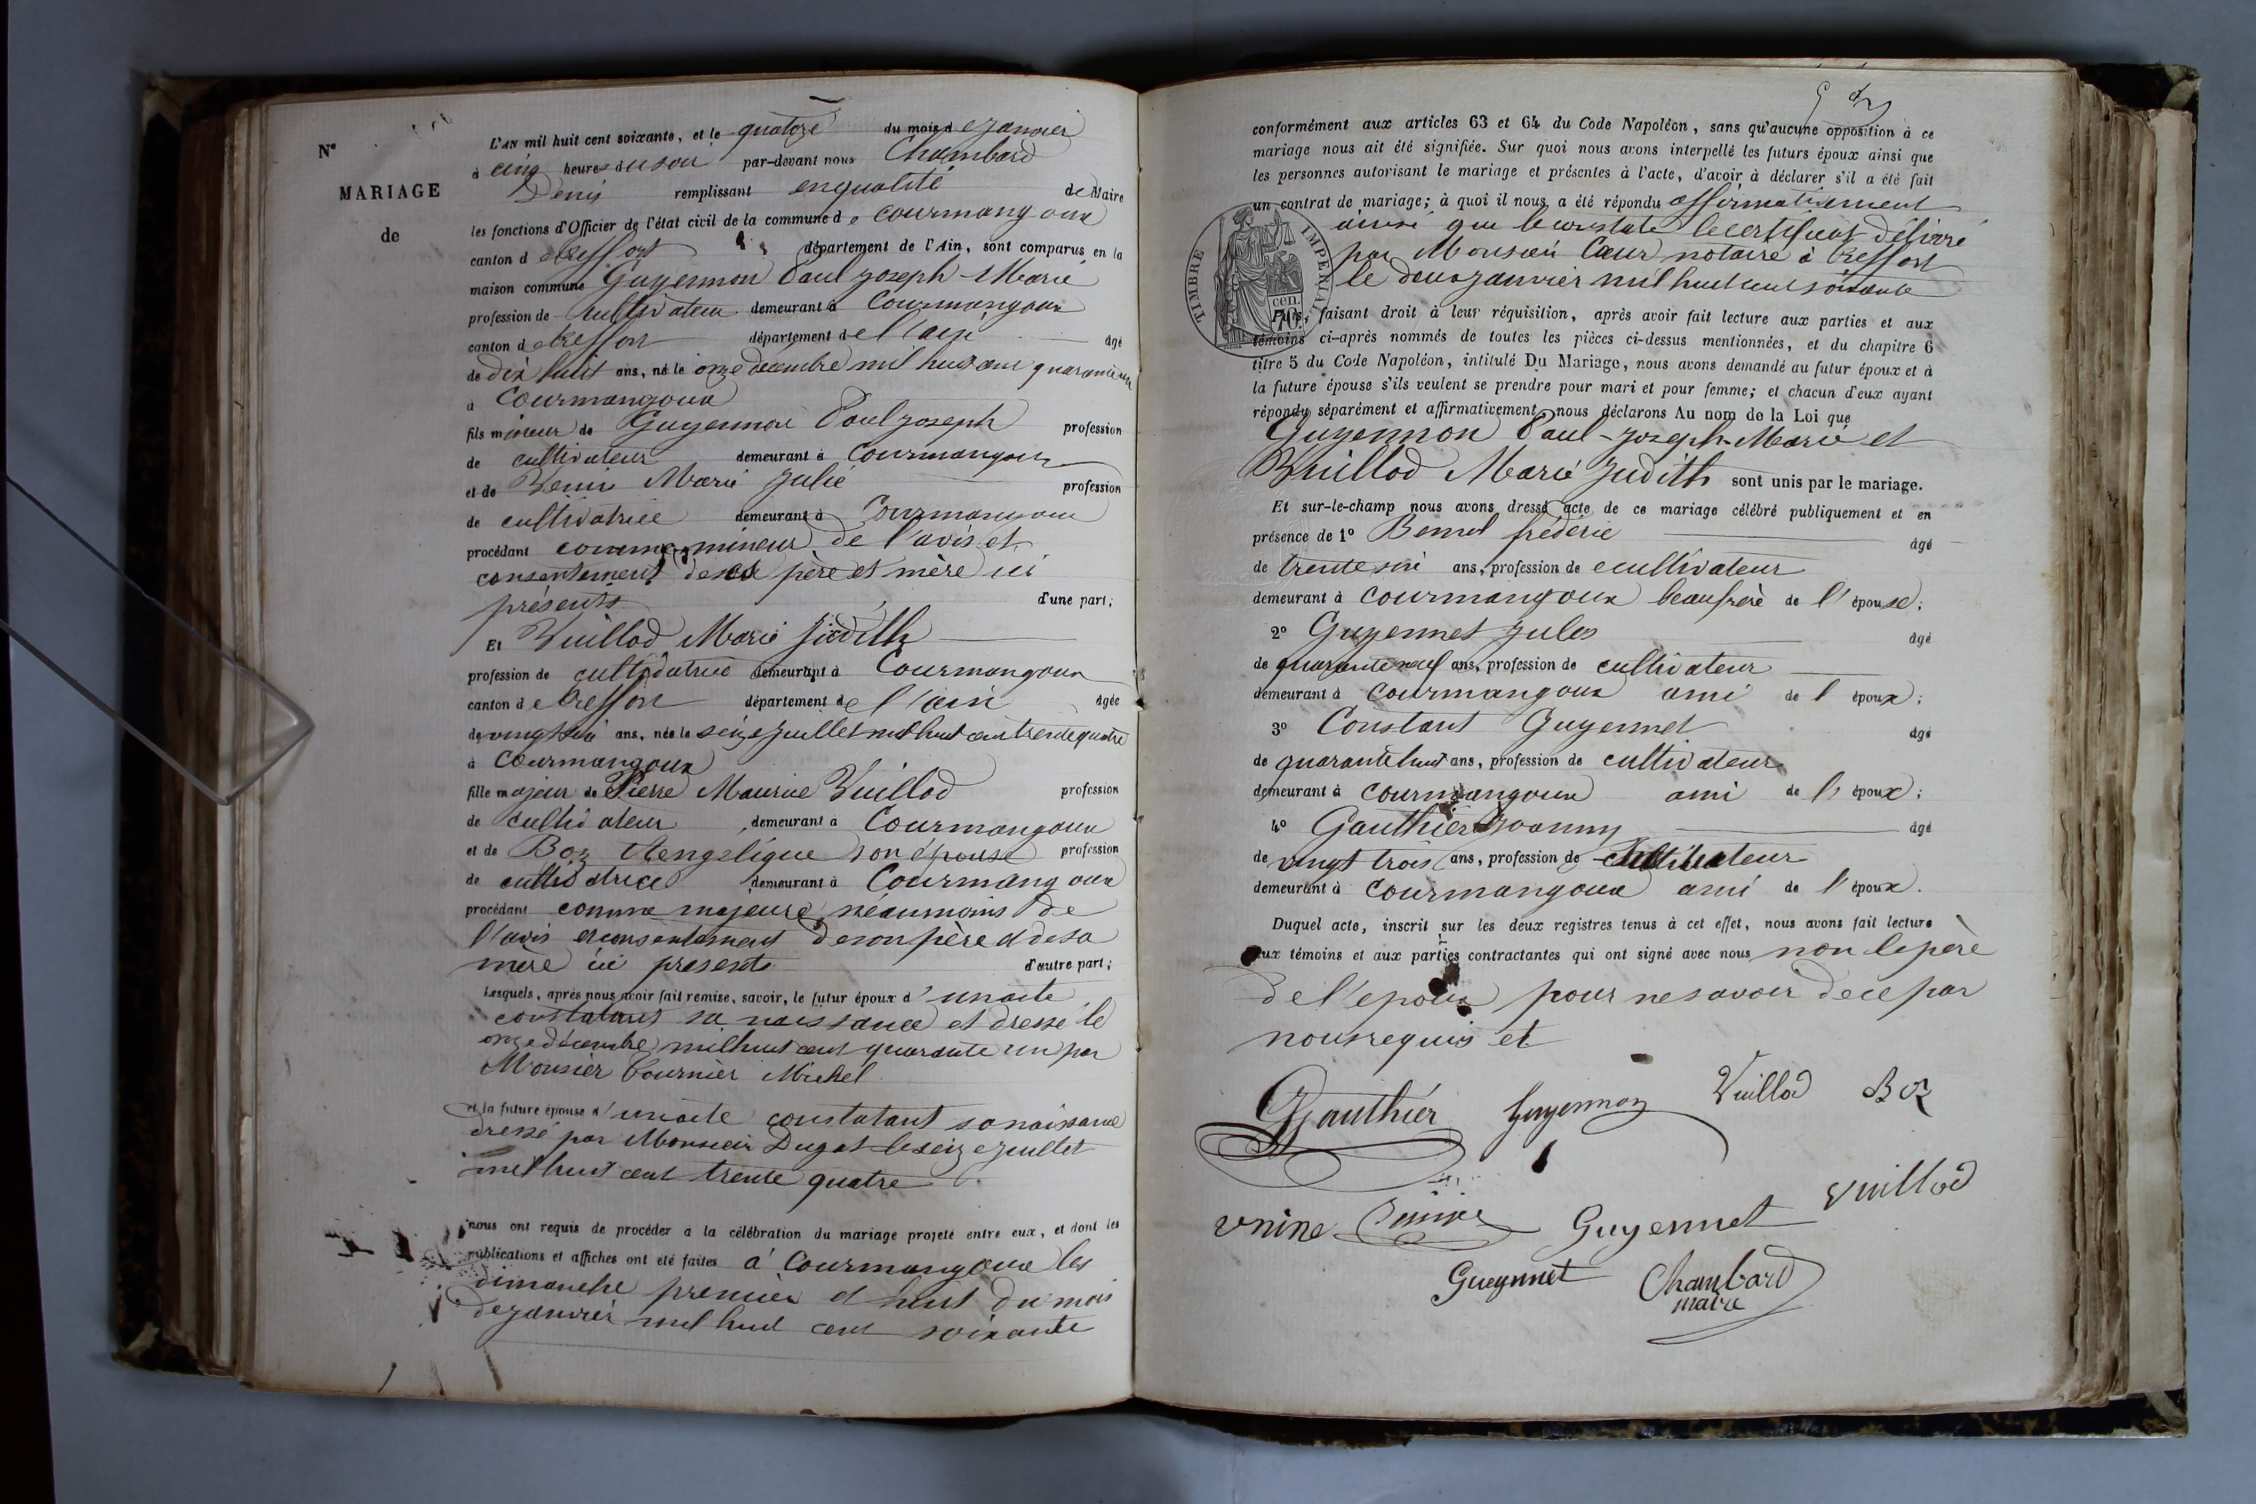 N°
MARIAGE
de
L'AN mil huit cent soixante, et le quatorze du mois de janvier
à cinq heures du soir par-devant nous Chambard
Denis remplissant en qualité de Maire
les fonctions d'Officier de l'état civil de la commune de Courmangoux
canton de treffort département de l'Ain, sont comparus en la
maison commune Guyennon Paul Joseph-Marie
profession de cultivateur demeurant à Courmangoux
canton de treffort département de l'ain âgé
de dix huit ans, né le onze décembre mil huit cent quarante un
à Courmangoux
fils mineur de Guyennon Paul Joseph profession
de cultivateur demeurant à Courmangoux
et de Marie Julie profession
de cultivatrice demeurant à Courmangoux
procédant comme mineur de l'avis et
consentement de ses père et mère ici
présents d'une part;
Et Vuillod Marie Judith
profession de cultivatrice demeurant à Courmangoux
canton de treffort département de l'ain âgée
de vingt six ans, née le seize juillet mil huit cent trente quatre
à Courmangoux
fille majeur de Pierre Maurice Vuillod profession
de cultivateur demeurant à Courmangoux
et de Boz Mengelique son épouse profession
de cultivatrice demeurant à Courmangoux
procédant comme majeure néaumoins de
l'avis et consentement de son père et de sa
mère ici presents d'autre part;
Lesquels, après nous avoir fait remise, savoir, le futur époux d'un acte
constatant sa naissance et dressé le
onze décembre mil huit cent quarante un par
Monsier Tournier Michel
et la future épouse d'un acte constatant sa naissance
dressé par Monsieur Dugat le seize juillet
mil huit cent trente quatre
nous ont requis de procéder à la célébration du mariage projeté entre eux, et dont les
publications et affiches ont été faites à Courmangoux les
dimanche premier et huit du mois
de janvier mil huit cent soixante
conformément aux articles 63 et 64 du Code Napoléon, sans qu'aucune opposition à ce
mariage nous ait été signifiée. Sur quoi nous avons interpellé les futurs époux ainsi que
les personnes autorisant le mariage et présentes à l'acte, d'avoir à déclarer s'il a été fait
un contrat de mariage; à quoi il nous a été répondu affirmativement
ainsi que le constate le certificat délivré
par Monsieur Cœur notaire à treffort
le deux janvier mil huit cent soixante
TIMBRE IMPERIAL
cen.
70.
Puis, faisant droit à leur réquisition, après avoir fait lecture aux parties et aux
témoins ci-après nommés de toutes les pièces ci-dessus mentionnées, et du chapitre 6
titre 5 du Code Napoléon, intitulé Du Mariage, nous avons demandé au futur époux et à
la future épouse s'ils veulent se prendre pour mari et pour femme; et chacun d'eux ayant
répondu séparément et affirmativement, nous déclarons Au nom de la Loi que
Guyennon Paul-Joseph-Marie et
Vuillod Marie Judith sont unis par le mariage.
Et sur-le-champ nous avons dressé acte de ce mariage célébré publiquement et en
présence de 1° frédéric âgé
de trente six ans, profession de cultivateur
demeurant à Courmangoux beaufrère de l'épouse;
2° Guyennet Jules âgé
de quarante neuf ans, profession de cultivateur
demeurant à Courmangoux ami de l'époux;
3° Constant Guyennet âgé
de quarante huit ans, profession de cultivateur
demeurant à Courmangoux ami de l'époux;
4° Gauthier Joanny âgé
de vingt trois ans, profession de cultivateur
demeurant à Courmangoux ami de l'époux.
Duquel acte, inscrit sur les deux registres tenus à cet effet, nous avons fait lecture
aux témoins et aux parties contractantes qui ont signé avec nous non le père
de l'epoux pour ne savoir de ce par
nous requis et
Gauthier Guyennon Vuillod Boz
Guyennet Vuillod
Gueynnet Chambard
maire